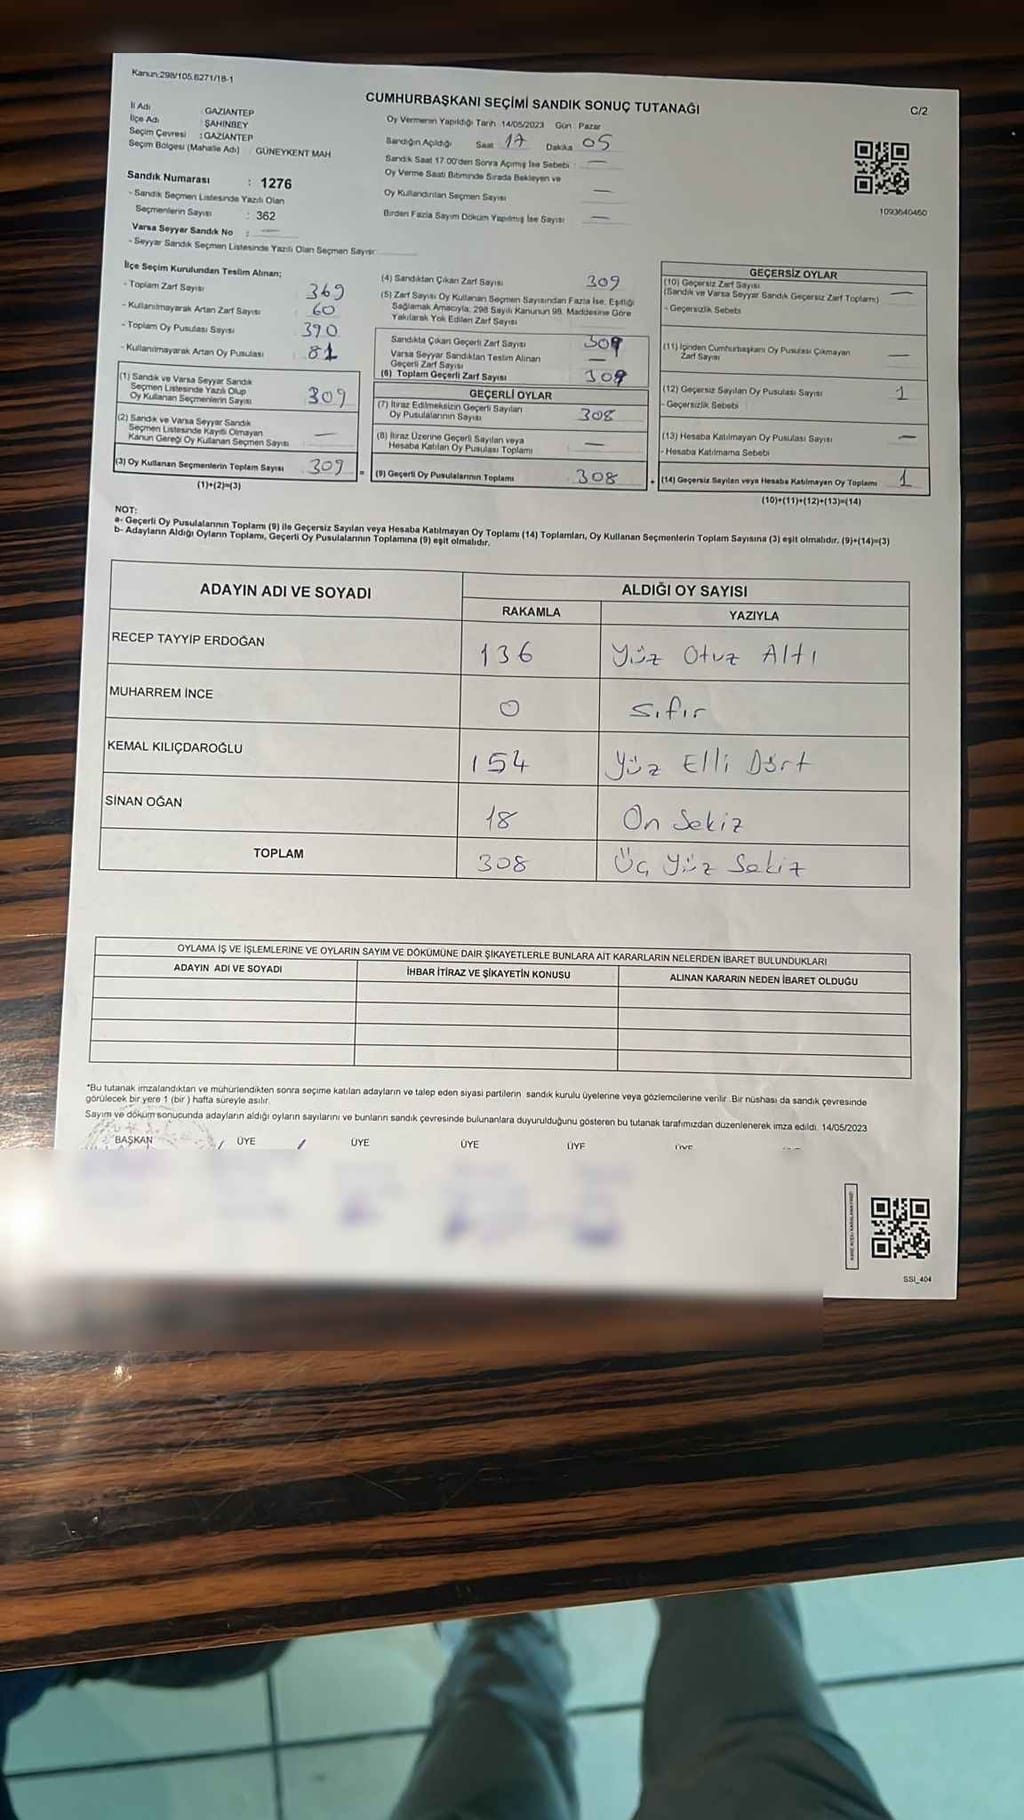 Kanun:298/105.6271/18-1
CUMHURBAŞKANI SEÇİMİ SANDIK SONUÇ TUTANAĞI
C/2
İl Adı : GAZİANTEP
İlçe Adı : ŞAHİNBEY
Seçim Çevresi : GAZİANTEP
Seçim Bölgesi (Mahalle Adı) : GÜNEYKENT MAH
Sandık Numarası : 1276
- Sandık Seçmen Listesinde Yazılı Olan
Seçmenlerin Sayısı : 362
Varsa Seyyar Sandık No : —
- Seyyar Sandık Seçmen Listesinde Yazılı Olan Seçmen Sayısı:
Oy Vermenin Yapıldığı Tarih :14/05/2023 Gün : Pazar
Sandığın Açıldığı Saat 17 Dakika 05
Sandık Saat 17.00'den Sonra Açımış İse Sebebi : —
Oy Verme Saati Bitiminde Sırada Bekleyen ve
Oy Kullandırılan Seçmen Sayısı —
Birden Fazla Sayım Döküm Yapılmış İse Sayısı —
1093640460
İlçe Seçim Kurulundan Teslim Alınan;
- Toplam Zarf Sayısı 369
- Kullanılmayarak Artan Zarf Sayısı 60
- Toplam Oy Pusulası Sayısı 390
- Kullanılmayarak Artan Oy Pusulası 81
(1) Sandık ve Varsa Seyyar Sandık
Seçmen Listesinde Yazılı Olup
Oy Kullanan Seçmenlerin Sayısı 309
(2) Sandık ve Varsa Seyyar Sandık
Seçmen Listesinde Kayıtlı Olmayan
Kanun Gereği Oy Kullanan Seçmen Sayısı —
(3) Oy Kullanan Seçmenlerin Toplam Sayısı 309
(1)+(2)=(3)
(4) Sandıktan Çıkan Zarf Sayısı 309
(5) Zarf Sayısı Oy Kullanan Seçmen Sayısından Fazla İse, Eşitliği
Sağlamak Amacıyla, 298 Sayılı Kanunun 98. Maddesine Göre
Yakılarak Yok Edilen Zarf Sayısı
Sandıkta Çıkan Geçerli Zarf Sayısı 309
Varsa Seyyar Sandıktan Teslim Alınan
Geçerli Zarf Sayısı —
(6) Toplam Geçerli Zarf Sayısı 309
GEÇERLİ OYLAR
(7) İtiraz Edilmeksizin Geçerli Sayılan
Oy Pusulalarının Sayısı 308
(8) İtiraz Üzerine Geçerli Sayılan veya
Hesaba Katılan Oy Pusulası Toplamı —
= (9) Geçerli Oy Pusulalarının Toplamı 308
GEÇERSİZ OYLAR
(10) Geçersiz Zarf Sayısı
(Sandık ve Varsa Seyyar Sandık Geçersiz Zarf Toplamı) —
- Geçersizlik Sebebi
(11) İçinden Cumhurbaşkanı Oy Pusulası Çıkmayan
Zarf Sayısı —
(12) Geçersiz Sayılan Oy Pusulası Sayısı 1
- Geçersizlik Sebebi
(13) Hesaba Katılmayan Oy Pusulası Sayısı —
- Hesaba Katılmama Sebebi
+ (14) Geçersiz Sayılan veya Hesaba Katılmayan Oy Toplamı 1
(10)+(11)+(12)+(13)=(14)
NOT:
a- Geçerli Oy Pusulalarının Toplamı (9) ile Geçersiz Sayılan veya Hesaba Katılmayan Oy Toplamı (14) Toplamları, Oy Kullanan Seçmenlerin Toplam Sayısına (3) eşit olmalıdır. (9)+(14)=(3)
b- Adayların Aldığı Oyların Toplamı, Geçerli Oy Pusulalarının Toplamına (9) eşit olmalıdır.
ADAYIN ADI VE SOYADI ALDIĞI OY SAYISI
RAKAMLA YAZIYLA
RECEP TAYYİP ERDOĞAN 136 Yüz Otuz Altı
MUHARREM İNCE 0 Sıfır
KEMAL KILIÇDAROĞLU 154 Yüz Elli Dört
SİNAN OĞAN 18 On Sekiz
TOPLAM 308 Üç Yüz Sekiz
OYLAMA İŞ VE İŞLEMLERİNE VE OYLARIN SAYIM VE DÖKÜMÜNE DAİR ŞİKAYETLERLE BUNLARA AİT KARARLARIN NELERDEN İBARET BULUNDUKLARI
ADAYIN ADI VE SOYADI İHBAR İTİRAZ VE ŞİKAYETİN KONUSU ALINAN KARARIN NEDEN İBARET OLDUĞU
*Bu tutanak imzalandıktan ve mühürlendikten sonra seçime katılan adayların ve talep eden siyasi partilerin sandık kurulu üyelerine veya gözlemcilerine verilir. Bir nüshası da sandık çevresinde
görülecek bir yere 1 (bir ) hafta süreyle asılır.
Sayım ve döküm sonucunda adayların aldığı oyların sayılarını ve bunların sandık çevresinde bulunanlara duyurulduğunu gösteren bu tutanak tarafımızdan düzenlenerek imza edildi. 14/05/2023
BAŞKAN ÜYE ÜYE ÜYE ÜYE ÜYE
SSI_404